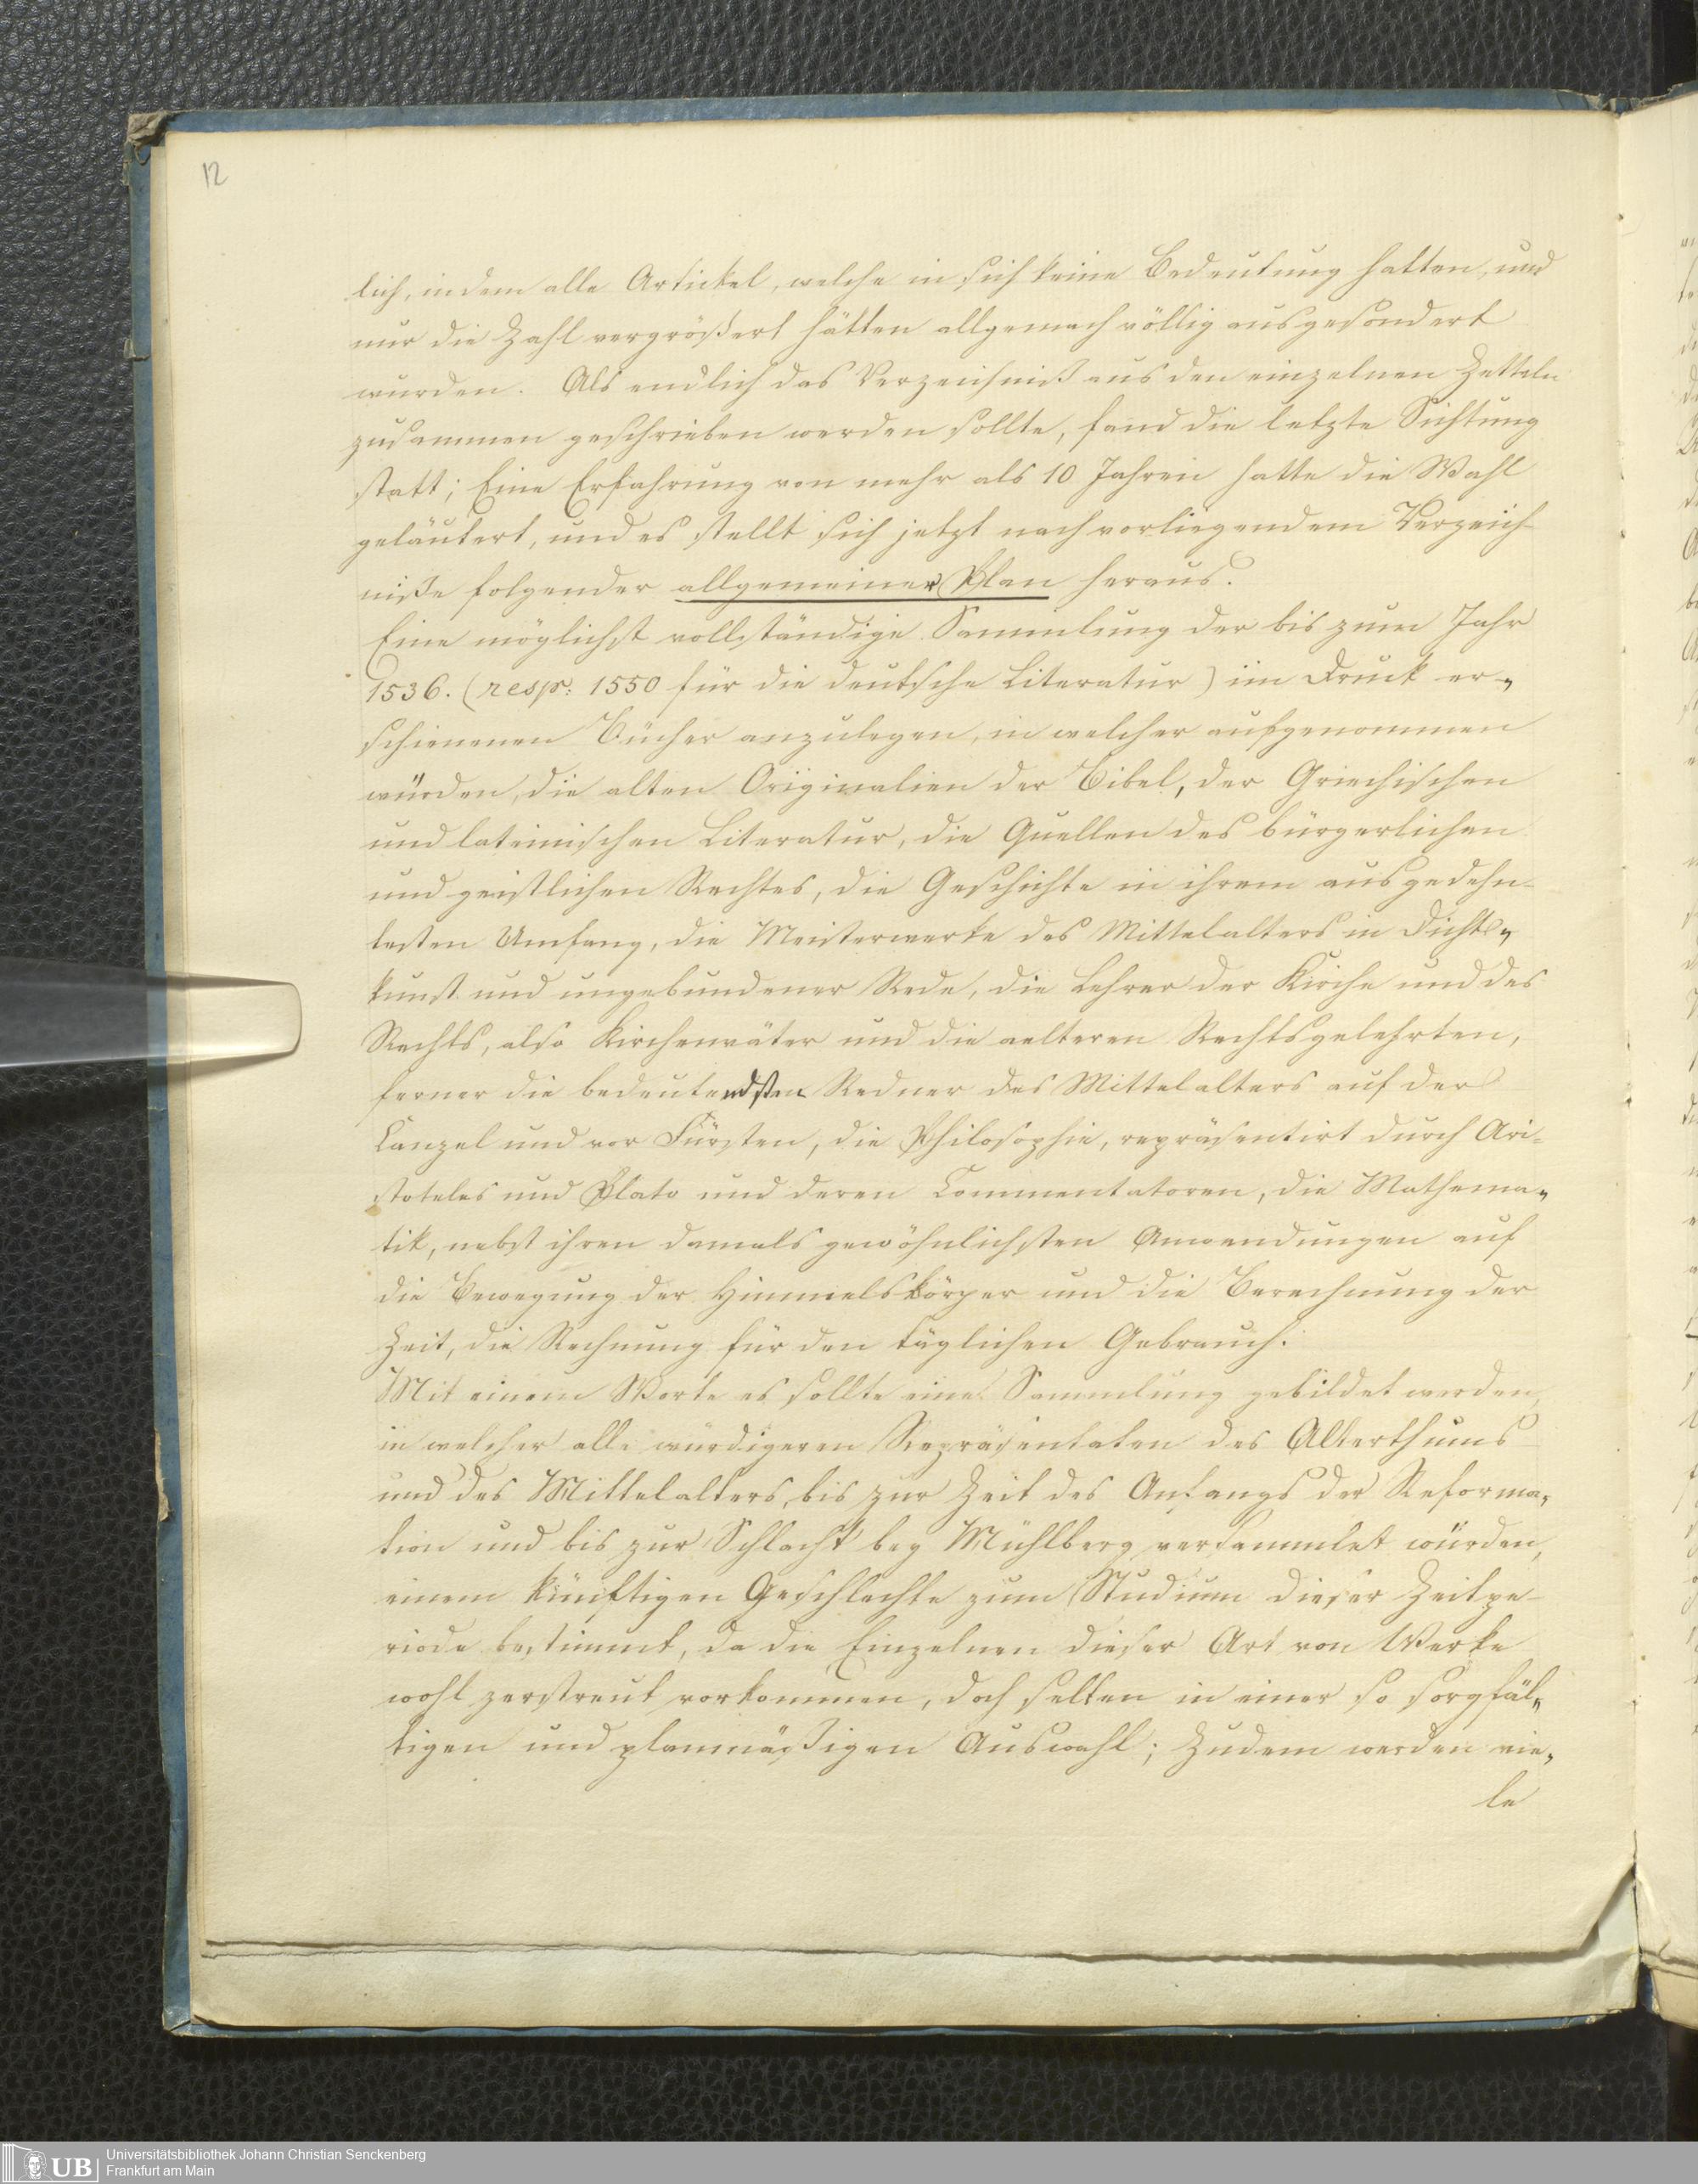 12
lich, indem alle Artickel, welche in sich keine Bedeutung hatten, und
nur die Zahl vergrößert hätten allgemach völlig ausgesondert
wurden. Als endlich das Verzeichniß aus den einzelnen Zetteln
zusammen geschrieben werden sollte, fand die letzte Sichtung
statt; Eine Erfahrung von mehr als 10 Jahren hatte die Wahl
geläutert, und es stellt sich jetzt nach vorliegendem Verzeich-
niße folgender allgemeiner Plan heraus.
Eine möglichst vollständige Sammlung der bis zum Jahr
1536. (resp: 1550 für die deutsche Literatur) im Druck er„
schienenen Bücher anzulegen, in welcher aufgenommen
würden, die alten Originalien der Bibel, der Griechischen
und lateinischen Literatur, die Quellen des bürgerlichen
und geistlichen Rechtes, die Geschichte in ihrem ausgedehn-
testen Umfang, die Meisterwerke des Mittelalters in Dicht„
kunst und ungebundener Rede, die Lehrer der Kirche und des
Rechts, also Kirchenväter und die aelteren Rechtsgelehrten,
ferner die bedeutendsten Redner des Mittelalters auf der
Canzel und vor Fürsten, die Philosophie, repräsentirt durch Ari-
stoteles und Plato und deren Commentatoren, die Mathema„
tik, nebst ihren damals gewöhnlichsten Anwendungen auf
die Bewegung der Himmelskörper und die Berechnung der
Zeit, die Rechnung für den täglichen Gebrauch.
Mit einem Worte es sollte eine Sammlung gebildet werden,
in welcher alle würdigeren Repräsentaten des Alterthums
und des Mittelalters, bis zur Zeit des Anfangs der Reforma„
tion und bis zur Schlacht bey Mühlberg versammlet würden,
einem künftigen Geschlechte zum Studium dieser Zeitpe-
riode bestimmt, da die Einzelnen dieser Art von Werke
wohl zerstreut vorkommen, doch selten in einer so sorgfäl„
tigen und planmäßigen Auswahl; Zudem werden vie„
le
UB
Universitätsbibliothek Johann Christian Senckenberg
Frankfurt am Main